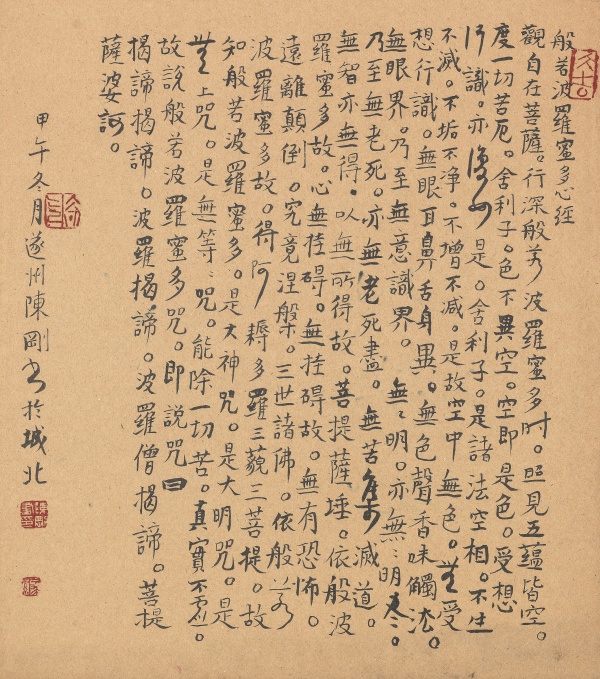 般若波羅蜜多心經
觀自在菩薩。行深般若波羅蜜多時。照見五蘊皆空。
度一切苦厄。舍利子。色不異空。空即是色。受想
行識。亦復如是。舍利子。是諸法空相。不生
不滅。不垢不净。不增不減。是故空中無色。无受
想行識。無眼耳鼻舌身。無色聲香味觸法。
無眼界。乃至無意識界。無〻明。亦無〻明尽。
乃至無老死。亦無老死盡。無苦集滅道。
無智亦無得。以無所得故。菩提薩埵。依般波
羅蜜多故。心無挂碍。無挂碍故。無有恐怖。
遠離顛倒。究竟涅槃。三世諸佛。依般若
波羅蜜多故。得阿耨多羅三藐三菩提。故
知般若波羅蜜多。是大神咒。是大明咒。是
无上咒。是無等〻咒。能除一切苦。真實不虛。
故說般若波羅蜜多咒。即說咒曰
揭諦揭諦。波羅揭諦。波羅僧揭諦。菩提
薩婆訶。
甲午冬月遂州陳剛书於城北